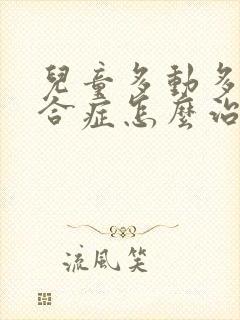 兒童多動多
合症怎麼治
流風笑